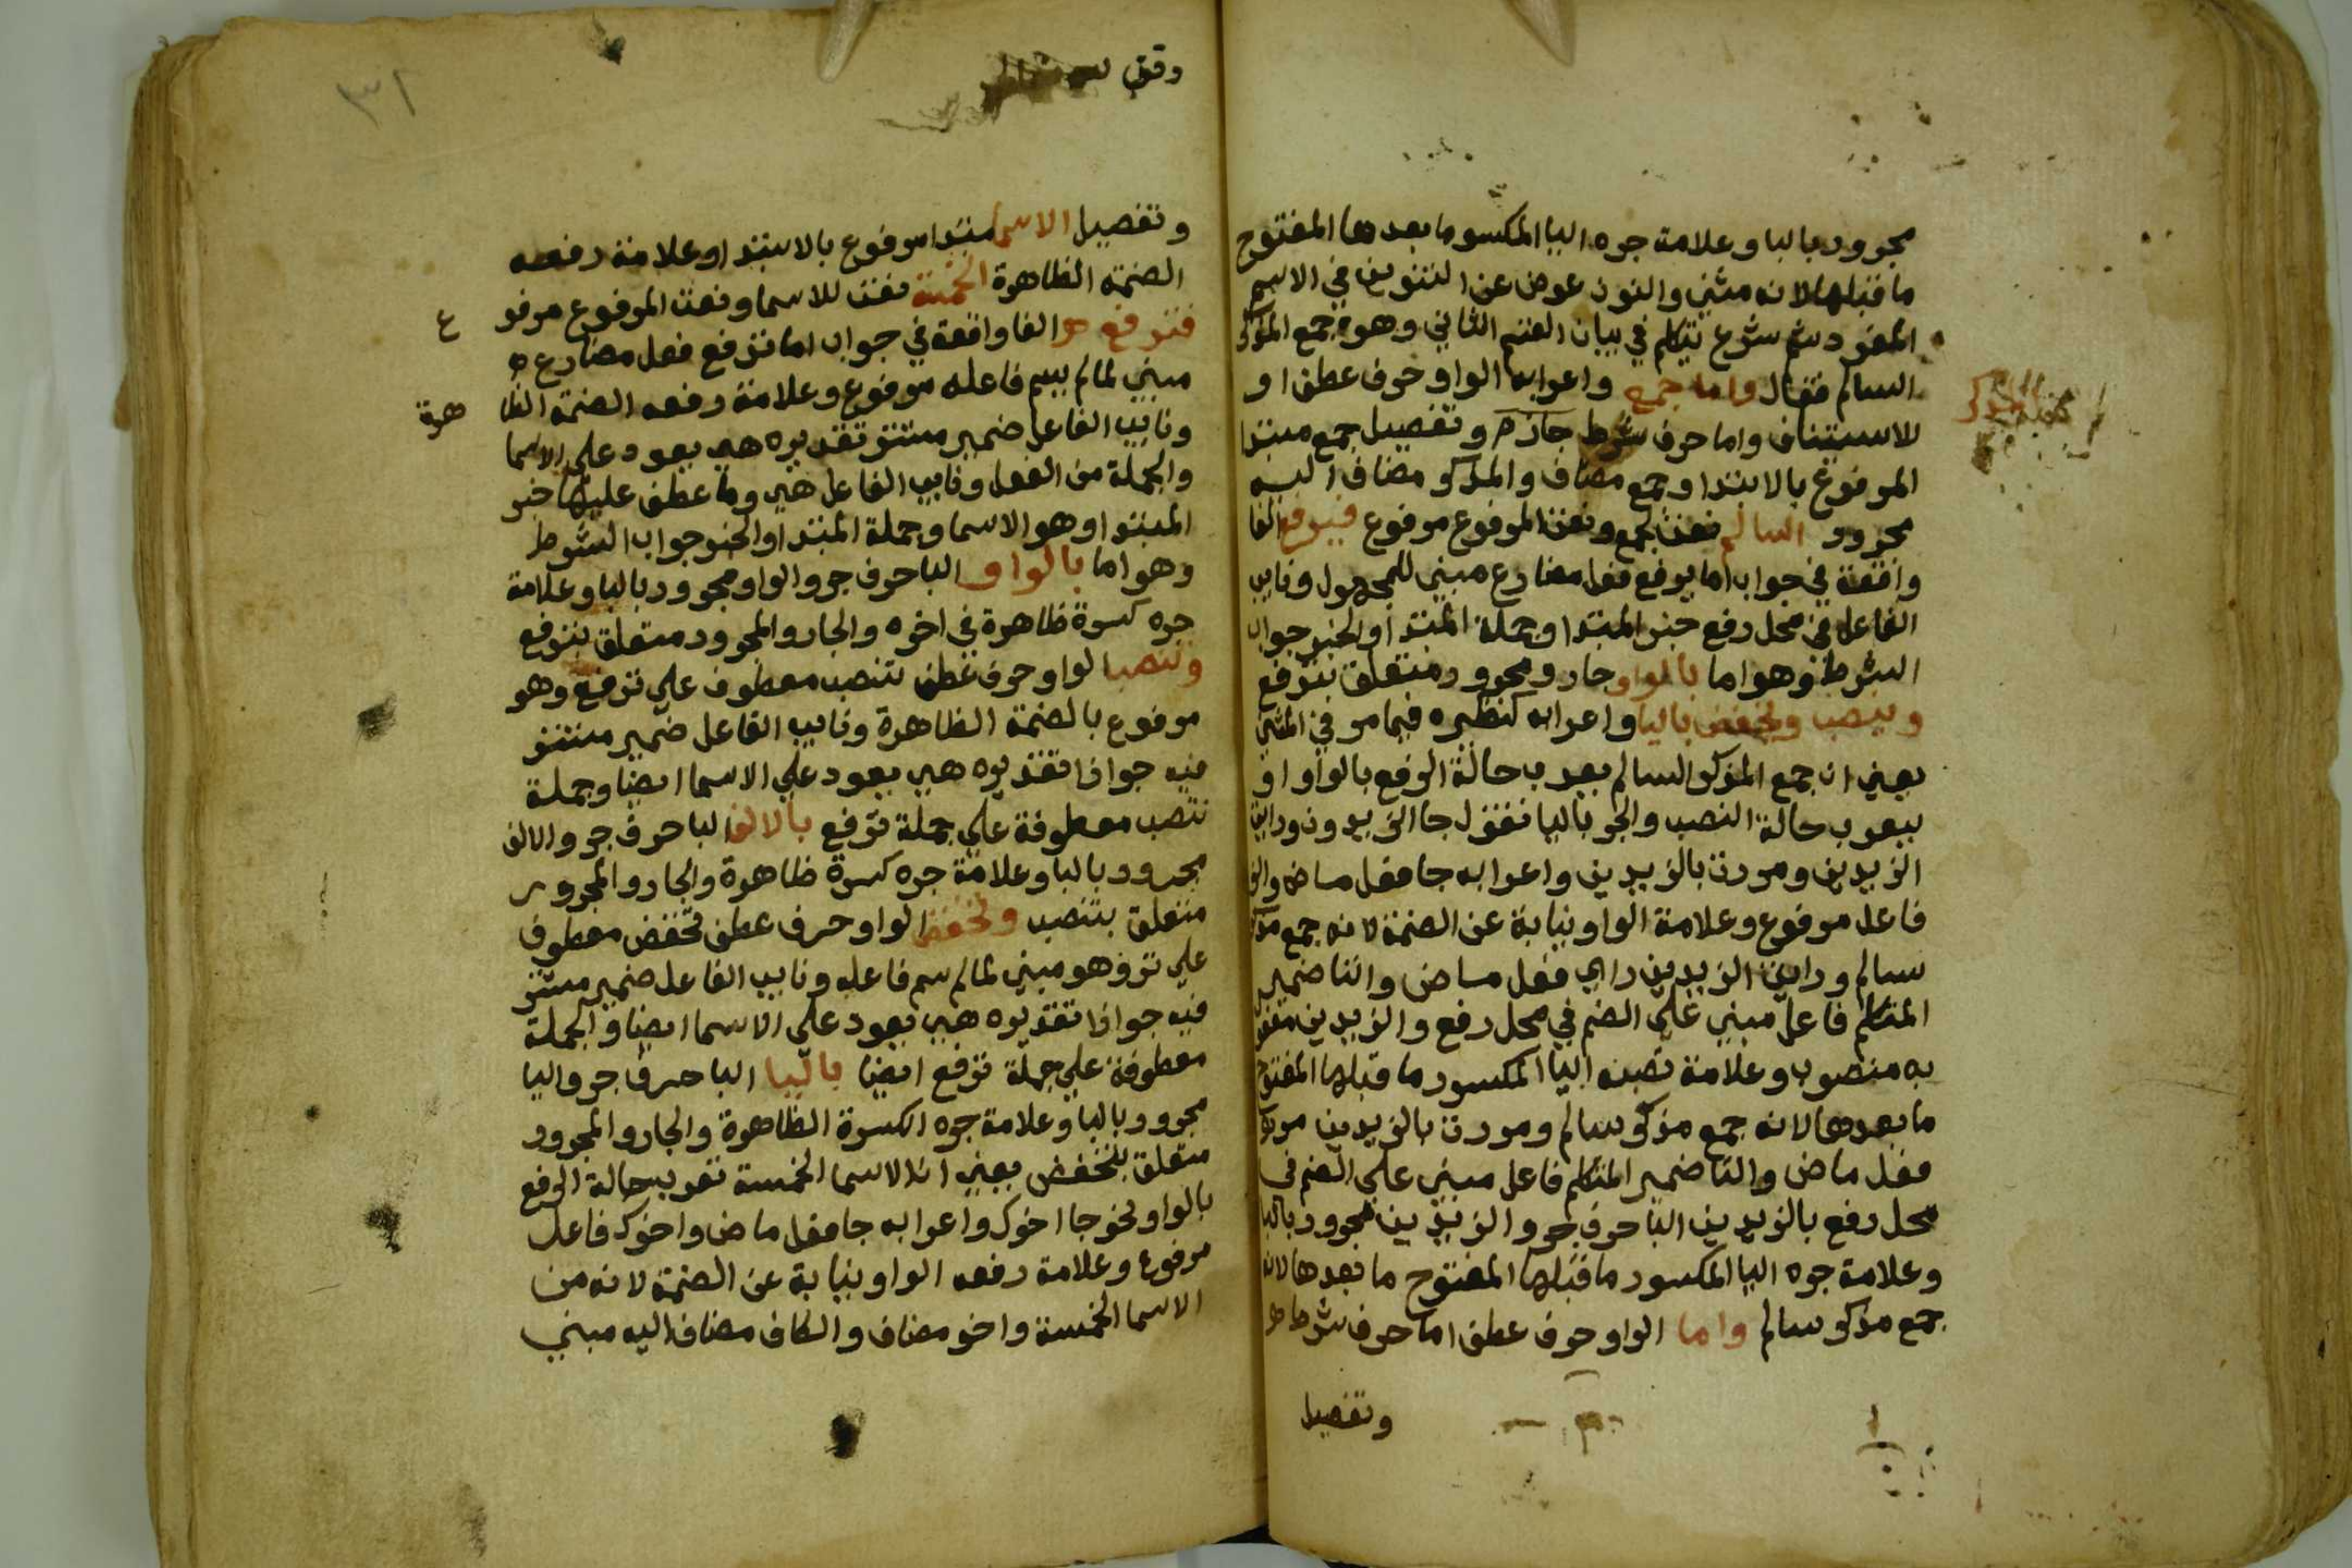 مجرور بالبا وعلامة جره اليا المكسور ما بعدها المفتوح
ما قبلها لانه مثني والنون عوض عن التنوين في الاسم
المفرد ثم شرع يتكلم في بيان القسم الثاني وهو جمع المذكر
السالم فقال واما جمع واعرابه الواو حرف عطف او
للاستيناف واما حرف شرط جازم وتفصيل جمع مبتدا
المرفوع بالابتدا وجمع مضاف والمذكر مضاف اليه
مجرور السالم نعت لجمع ونعت المرفوع مرفوع فيرفع الفا
واقعة في جواب اما يرفع فعل مضارع مبني للمجهول ونايب
الفاعل في محل رفع خبر المبتدا وجملة المبتدا والخبر جواب
الشرط وهو اما بالواو جار ومجرور متعلق بترفع
وينصب ويخفض باليا واعرابه كنظيره فيما مر في المثني
يعني ان جمع المذكر السالم يعرب حالة الرفع بالواو او
يعرب حالة النصب والجر باليا فتقول جا الزيدون ورايت
الزيدين ومررت بالزيدين واعرابه جا فعل ماض والز
فاعل مرفوع وعلامة الواو نيابة عن الضمة لانه جمع مذكر
سالم ورايت الزيدين راي فعل ماض والتا ضمير
المتكلم فاعل مبني علي الضم في محل رفع والزيدين مفعول
به منصوب وعلامة نصبه اليا المكسور ما قبلها المفتوح
ما بعدها لانه جمع مذكر سالم ومررت بالزيدين مررت
فعل ماض والتا ضمير المتكلم فاعل مبني علي الضم في
محل رفع بالزيدين البا حرف جر والزيدين مجرور بالبا
وعلامة جره اليا المكسور ما قبلها المفتوح ما بعدها لانه
جمع مذكر سالم واما الواو حرف عطف اما حرف شرط
وتفصيل
وقف
٣١
وتفصيل الاسما مبتدا مرفوع بالابتدا وعلامة رفعه
الضمة الظاهرة الخمسة نعت للاسما ونعت المرفوع مرفوع
فترفع الفا واقعة في جواب اما ترفع فعل مضارع
مبني لمالم يسم فاعله مرفوع وعلامة رفعه الضمة الظاهرة
ونايب الفاعل ضمير مستتر تقديره هي يعود علي الاسما
والجملة من الفعل ونايب الفاعل هي وما عطف عليها خبر
المبتدا وهو الاسما وجملة المبتدا والخبر جواب الشرط
وهو اما بالواو البا حرف جر والواو مجرور بالبا وعلامة
جره كسرة ظاهرة في اخره والجار والمجرور متعلق بترفع
وتنصب الواو حرف عطف تنصب معطوف علي ترفع وهو
مرفوع بالضمة الظاهرة ونايب الفاعل ضمير مستتر
فيه جوازا تقديره هي يعود علي الاسما ايضا وجملة
تنصب معطوفة علي جملة ترفع بالالف البا حرف جر والالف
مجرور بالبا وعلامة جره كسرة ظاهرة والجار والمجرور
متعلق بتنصب وتخفض الواو حرف عطف تخفض معطوف
علي ترفع وهو مبني لمالم يسم فاعله ونايب الفاعل ضمير مستتر
فيه جوازا تقديره هي يعود علي الاسما ايضا والجملة
معطوفة علي جملة ترفع ايضا باليا البا حرف جر واليا
مجرور بالبا وعلامة جره الكسرة الظاهرة والجار والمجرور
متعلق بتخفض يعني ان الاسما الخمسة تعرب حالة الرفع
بالواو نحو جا اخوك واعرابه جا فعل ماض واخوك فاعل
مرفوع وعلامة رفعه الواو نيابة عن الضمة لانه من
الاسما الخمسة واخو مضاف والكاف مضاف اليه مبني